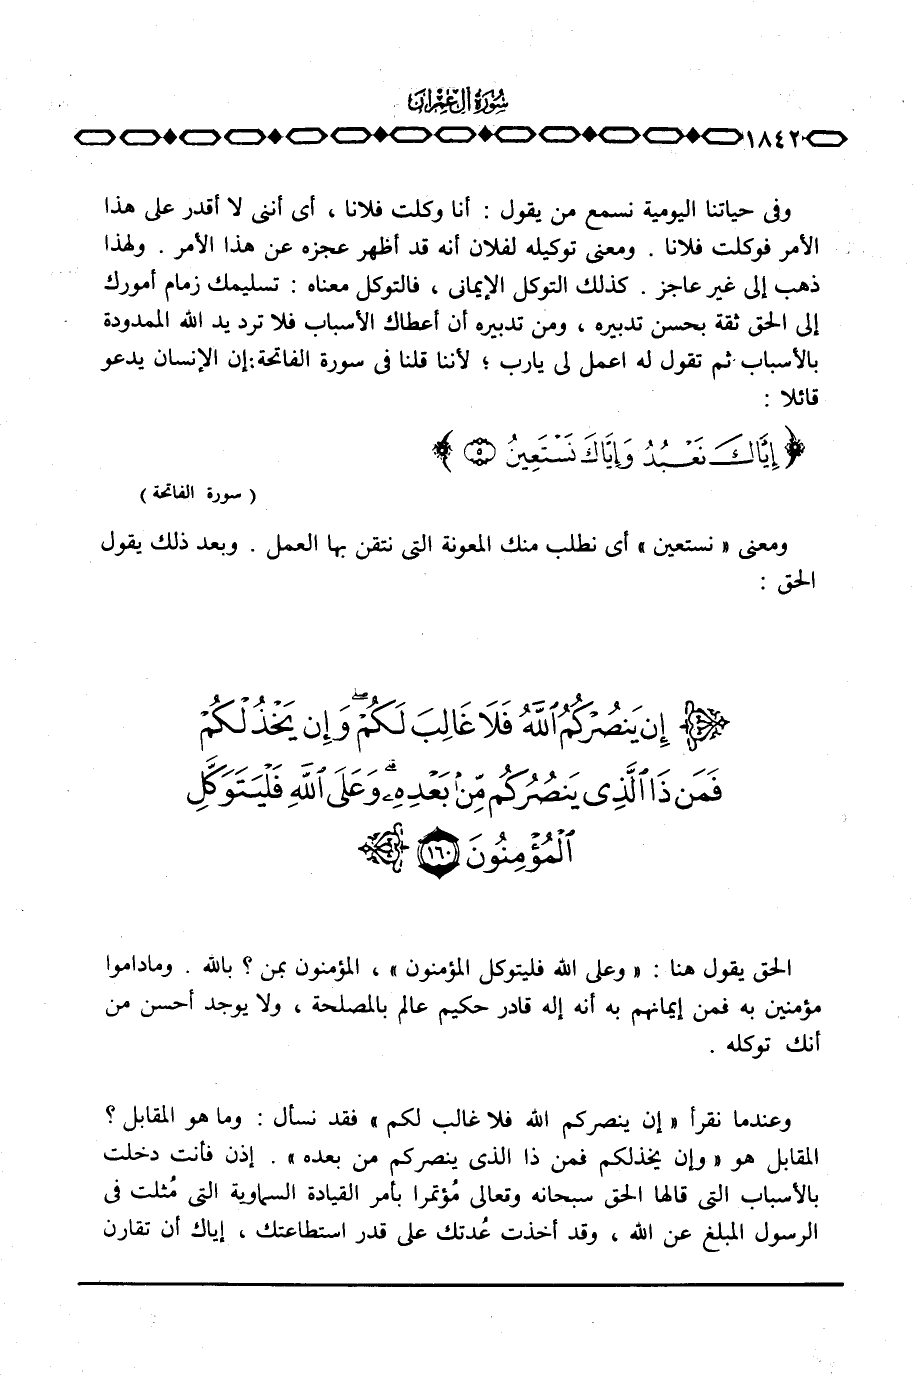 سُورَةُ آلِ عِمْرَانَ
١٨٤٢
وفى حياتنا اليومية نسمع من يقول : أنا وكلت فلانا ، أى أننى لا أقدر على هذا
الأمر فوكلت فلانا . ومعنى توكيله لفلان أنه قد أظهر عجزه عن هذا الأمر . ولهذا
ذهب إلى غير عاجز . كذلك التوكل الإيمانى ، فالتوكل معناه : تسليمك زمام أمورك
إلى الحق ثقة بحسن تدبيره ، ومن تدبيره أن أعطاك الأسباب فلا ترد يد الله الممدودة
بالأسباب ثم تقول له اعمل لى يارب ؛ لأننا قلنا فى سورة الفاتحة:إن الإنسان يدعو
قائلا :
﴿ إِيَّاكَ نَعْبُدُ وَإِيَّاكَ نَسْتَعِينُ ۝٥ ﴾
( سورة الفاتحة )
ومعنى « نستعين » أى نطلب منك المعونة التى نتقن بها العمل . وبعد ذلك يقول
الحق :
﴿ إِن يَنصُرْكُمُ ٱللَّهُ فَلَا غَالِبَ لَكُمْ ۖ وَإِن يَخْذُلْكُمْ
فَمَن ذَا ٱلَّذِى يَنصُرُكُم مِّنۢ بَعْدِهِۦ ۗ وَعَلَى ٱللَّهِ فَلْيَتَوَكَّلِ
ٱلْمُؤْمِنُونَ ١٦٠ ﴾
الحق يقول هنا : « وعلى الله فليتوكل المؤمنون » ، المؤمنون بمن ؟ بالله . وماداموا
مؤمنين به فمن إيمانهم به أنه إله قادر حكيم عالم بالمصلحة ، ولا يوجد أحسن من
أنك توكله .
وعندما نقرأ « إن ينصركم الله فلا غالب لكم » فقد نسأل : وما هو المقابل ؟
المقابل هو « وإن يخذلكم فمن ذا الذى ينصركم من بعده » . إذن فأنت دخلت
بالأسباب التى قالها الحق سبحانه وتعالى مُؤتمرا بأمر القيادة السماوية التى مُثلت فى
الرسول المبلغ عن الله ، وقد أخذت عُدتك على قدر استطاعتك ، إياك أن تقارن